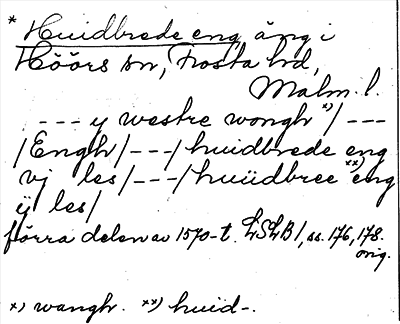 * Huidbrede eng äng i
Höörs sn, Frosta hd,
Malm. l.
--- y westre wongh *)/ ---
/Engh/---/ huidbrede eng
vj les/---/ huüdbree **) eng
ÿ les/
förra delen av 1570-t. LSLB1, ss. 176, 178.
orig.
*) wangh. **) huid-.